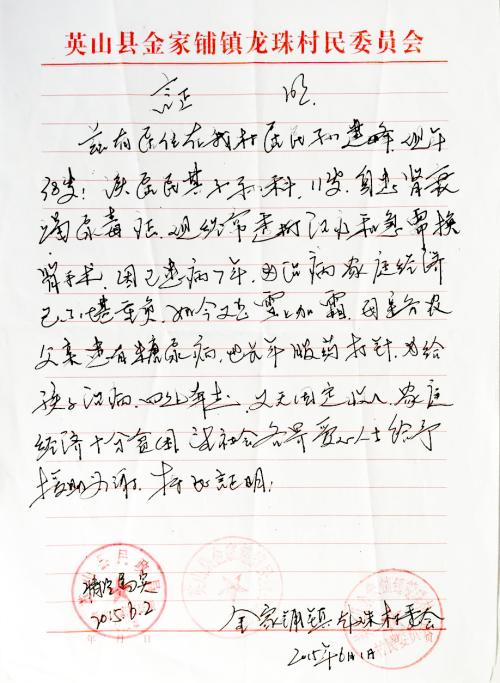 英山县金家铺镇龙珠村民委员会
证 明
兹有居住在我村居民 建峰，现年
38岁！该居民其子 科，11岁，身患肾衰
竭尿毒症，现经常进行 和急需换
肾手术，因已患病7年，为治病家庭经济
已不堪重负，如今又是雪上加霜，
父亲患有糖尿病，也长年服药打针，为给
孩子治病，四处奔走，又无固定收入，家庭
经济十分贫困，请社会各界爱心人士给予
援助为谢，特此证明！
情况属实
2015.6.2
金家铺镇龙珠村委会
2015年6月1日